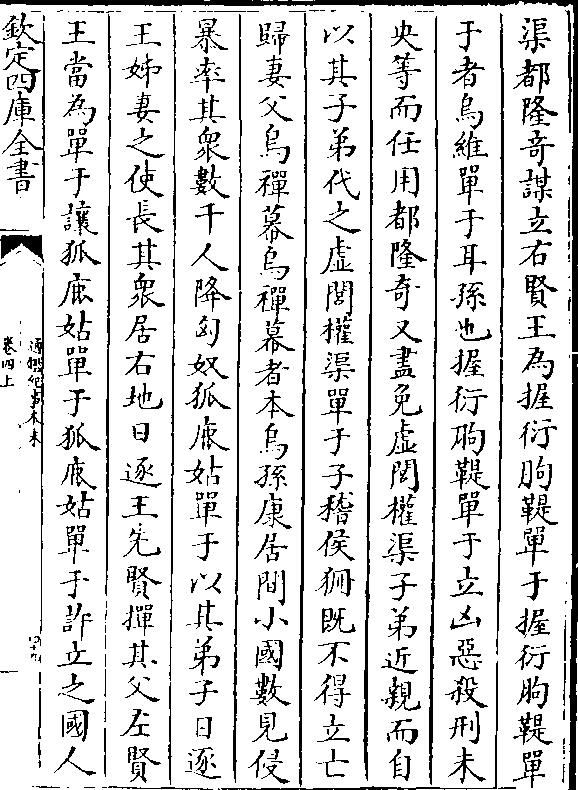 渠都隆竒謀立右賢王為握衍朐鞮單于握衍朐鞮單
于者烏維單于耳孫也握衍朐鞮單于立凶惡殺刑未
央等而任用都隆奇又盡免虛閭權渠子弟近親而自
以其子弟代之虛閭權渠單于子稽侯狦既不得立亡
歸妻父烏禪幕烏禪幕者本烏孫康居間小國數見侵
暴率其衆數千人降匈奴狐鹿姑單于以其弟子日逐
王姊妻之使長其衆居右地日逐王先賢撣其父左賢
王當為單于讓狐鹿姑單于狐鹿姑單于許立之國人
欽定四庫全書
通鑑紀事本末
卷四上